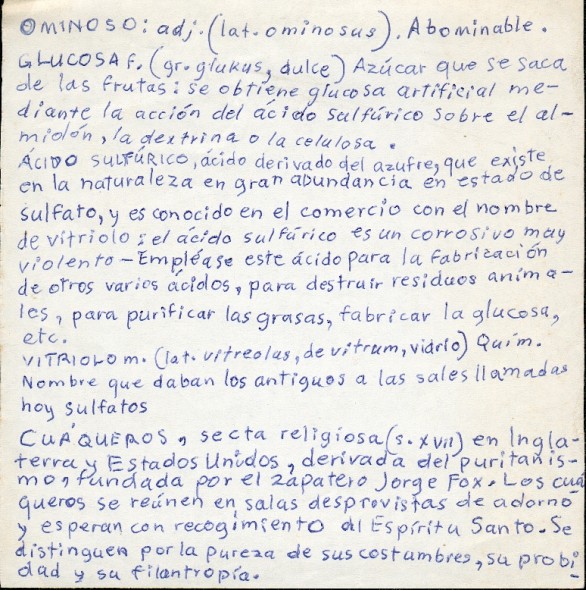 OMINOSO: adj. (lat. ominosus). Abominable.
GLUCOSA F. (gr. glukus, dulce) Azúcar que se saca
de las frutas: se obtiene glucosa artificial me-
diante la acción del ácido sulfúrico sobre el al-
midón, la dextrina o la celulosa.
ÁCIDO SULFÚRICO, ácido derivado del azufre, que existe
en la naturaleza en gran abundancia en estado de
sulfato, y es conocido en el comercio con el nombre
de vitriolo: el ácido sulfúrico es un corrosivo muy
violento - Empléase este ácido para la fabricación
de otros varios ácidos, para destruir residuos anima-
les, para purificar las grasas, fabricar la glucosa,
etc.
VITRIOLO m. (lat. vitreolas, de vitrum, vidrio) Quím.
Nombre que daban los antiguos a las sales llamadas
hoy sulfatos
CUÁQUEROS, secta religiosa (s. XVII) en Ingla-
terra y Estados Unidos, derivada del puritanis-
mo, fundada por el zapatero Jorge Fox. Los cuá
queros se reúnen en salas desprovistas de adorno
y esperan con recogimiento al Espíritu Santo. Se
distinguen por la pureza de sus costumbres, su probi
dad y su filantropía.